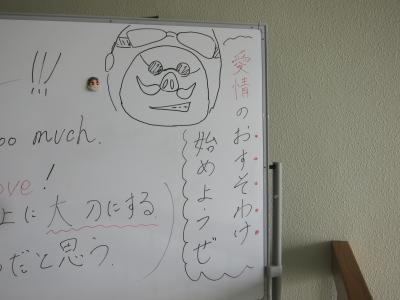 !!!
oo much.
ove!
上に大刀にする
だと思う.
愛情のおすそわけ
始めようぜ